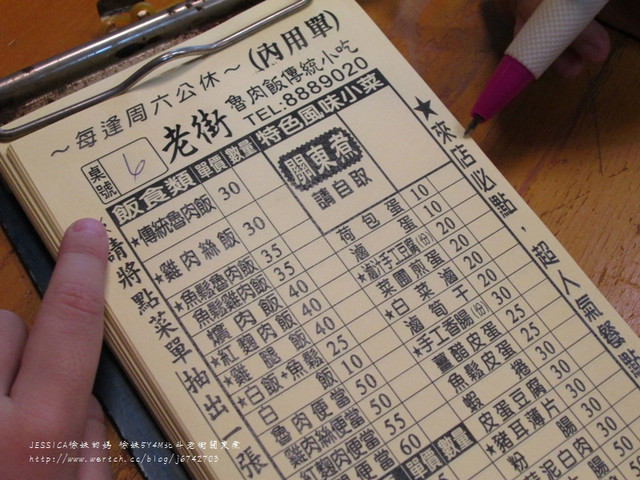 ～每逢周六公休～ (內用單)
老街 魯肉飯傳統小吃
TEL:8889020
桌號 6
飯食類 單價 數量 特色風味小菜
★傳統魯肉飯 30
★雞肉絲飯 30
★魚鬆魯肉飯 35
魚鬆雞肉飯 35
爌肉飯 40
★紅麴肉飯 40
★雞腿飯 40
★白飯+魚鬆 25
白飯 10
魯肉便當 50
雞肉絲便當 50
爌肉便當 55
紅麴肉便當 60
單價 數量
關東煮
請自取
荷包蛋 10
滷蛋 10
★滷汁手工豆腐(份) 20
菜圃煎蛋 20
★白菜滷 20
滷筍干 20
★手工香腸(份) 30
薑醋皮蛋 25
魚鬆皮蛋 25
蝦捲 30
皮蛋豆腐 30
★豬耳薄片 30
粉腸 30
蒜泥白肉 30
★來店必點，超人氣餐點
★請將點菜單抽出一張
JESSICA
http://www.wretch.cc/blog/j6742703